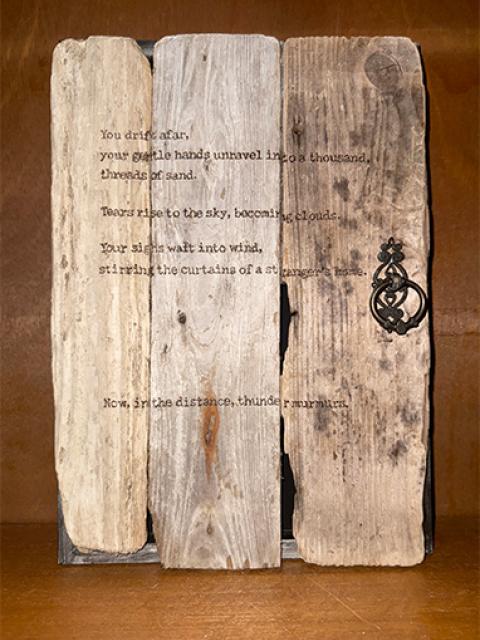 You drift afar,
your gentle hands unravel into a thousand,
threads of sand.
Tears rise to the sky, becoming clouds.
Your sighs wait into wind,
stirring the curtains of a stranger's home.
Now, in the distance, thunder murmurs.